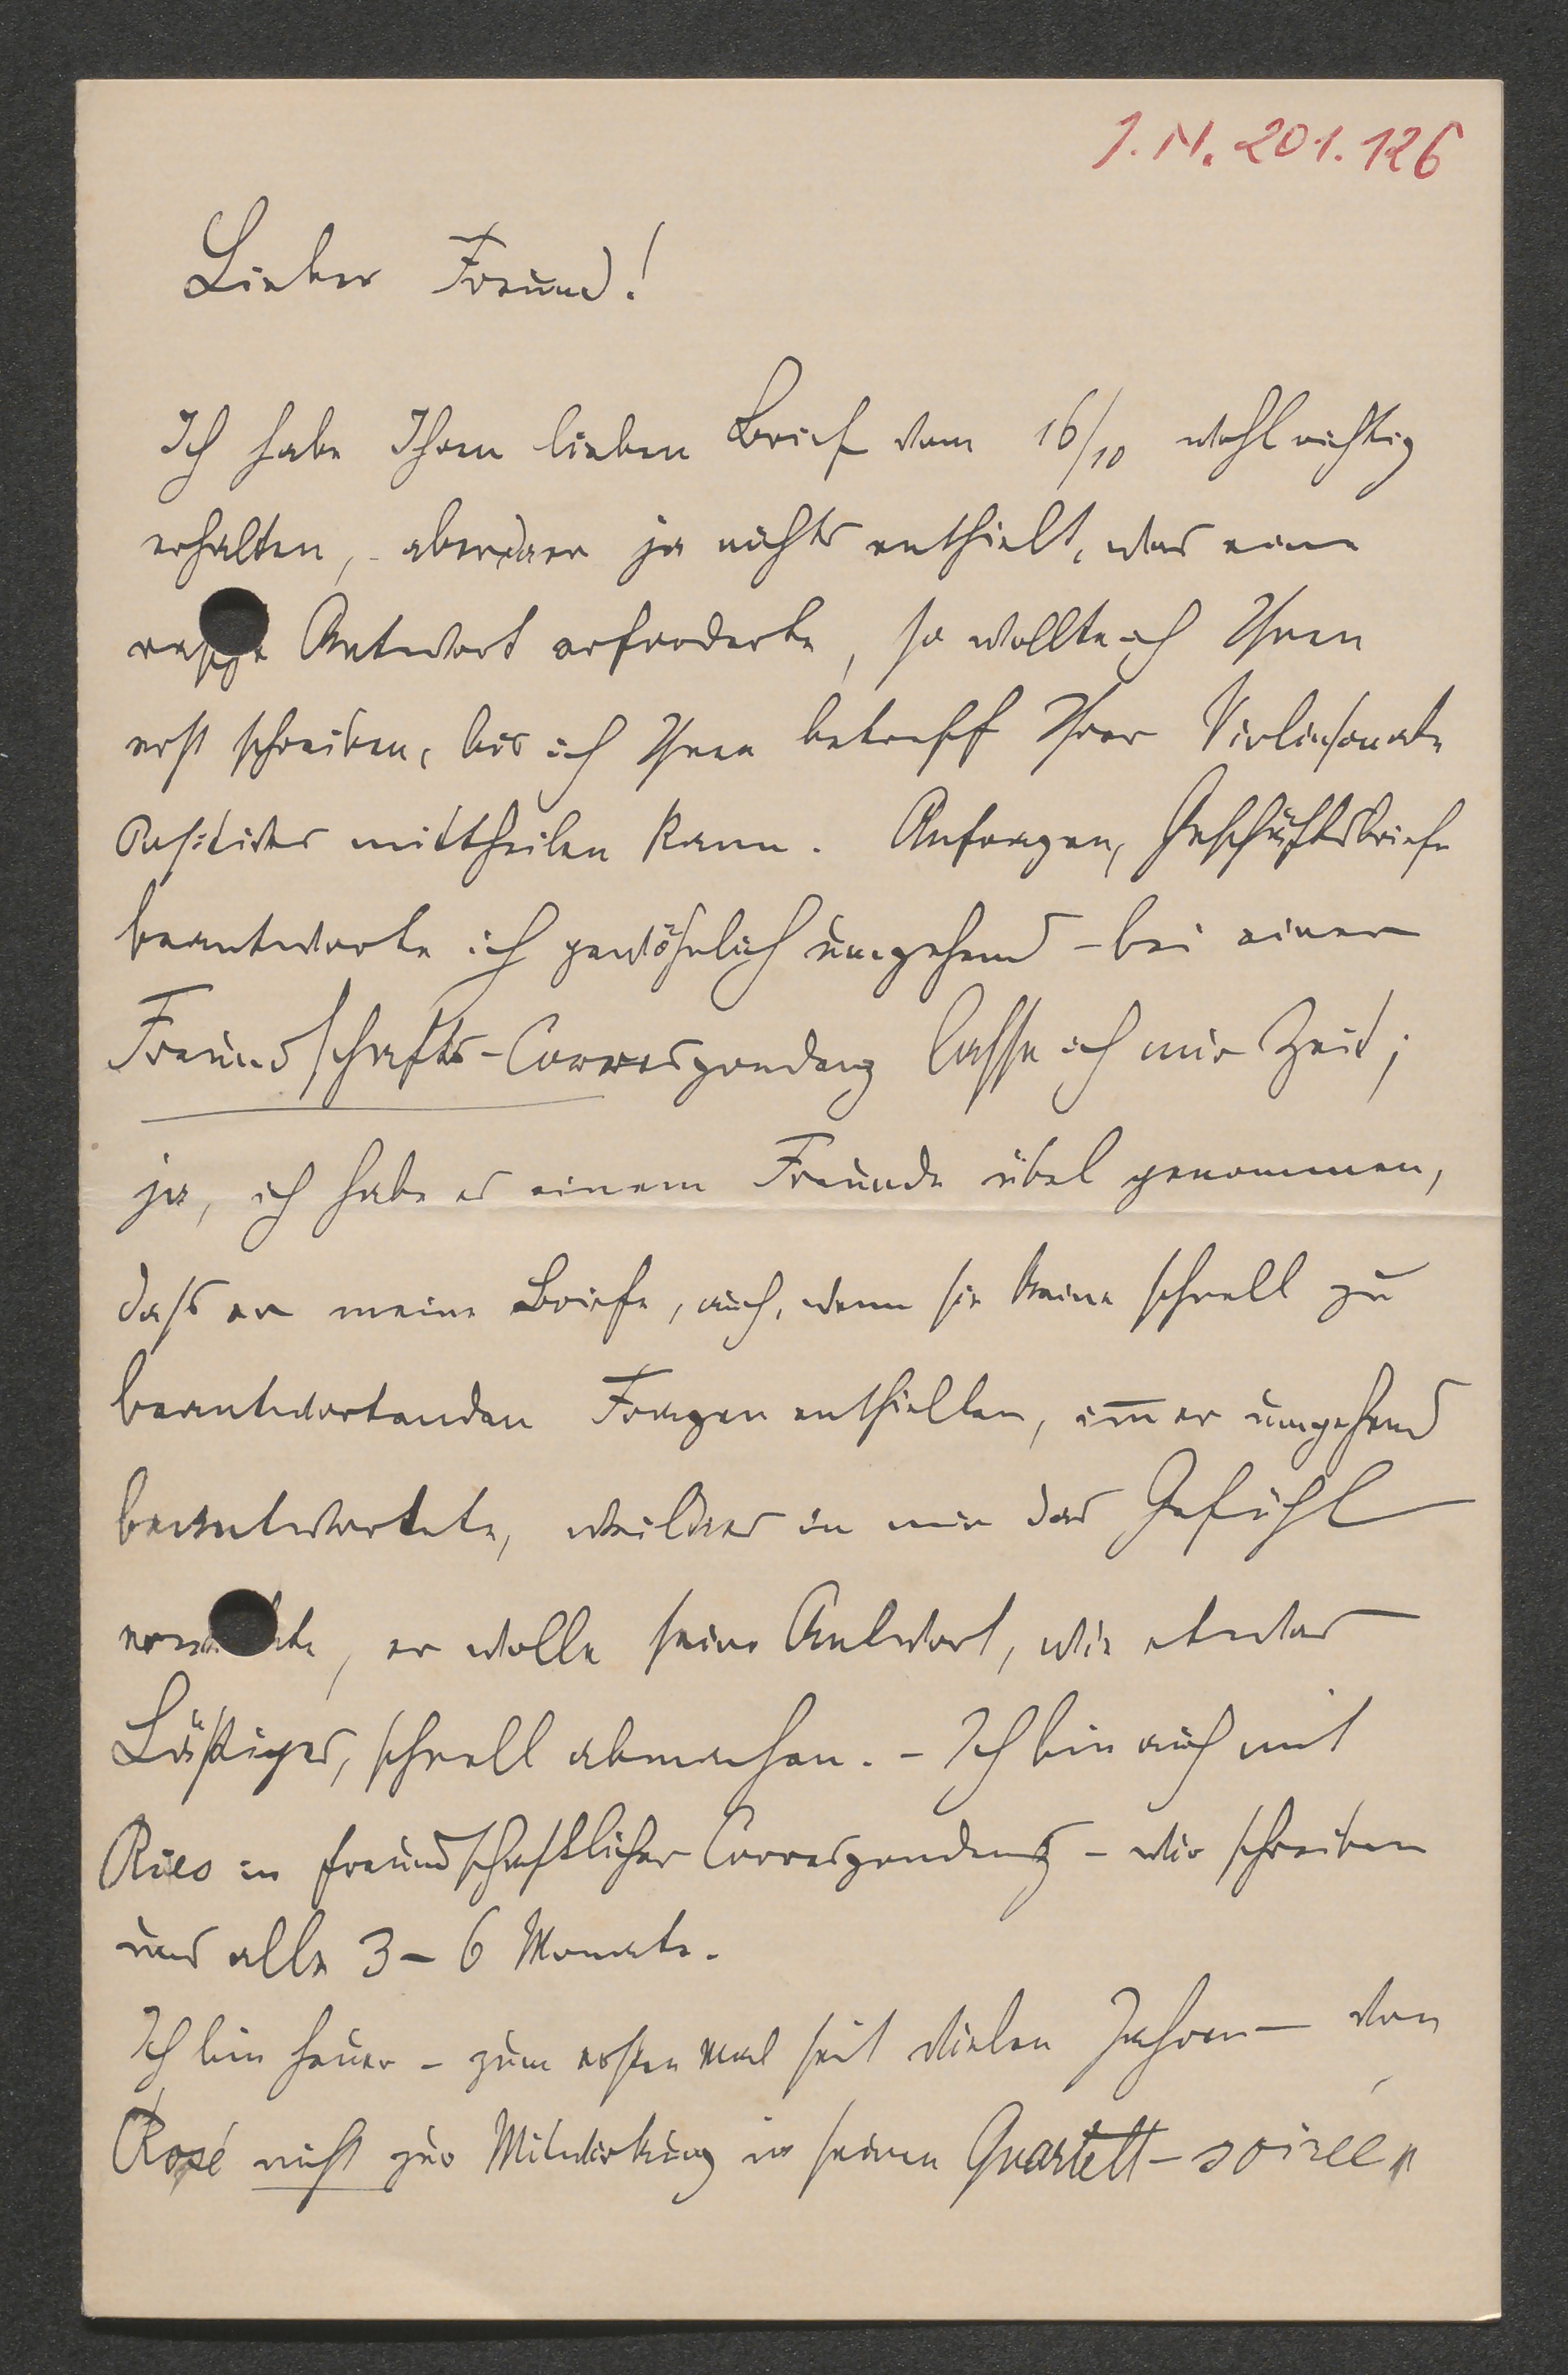 J.N. 201.126
Lieber Freund!
Ich habe Ihren lieben Brief vom 16/10 wohl richtig
erhalten, - aber da er ja nichts enthielt, was eine
rasche Antwort erforderte, so wollte ich Ihnen
erst schreiben, bis ich Ihnen betreff Ihrer Violinsonate
Positives mittheilen kann. Anfragen, Geschäftsbriefe
beantworte ich gewöhnlich umgehend - bei einer
Freundschafts-Correspondenz lasse ich mir Zeit;
ja, ich habe es einem Freunde übel genommen,
dass er meine Briefe, auch, wenn sie keine schnell zu
beantwortenden Fragen enthielten, im̅er umgehend
beantwortete, weil das in mir das Gefühl
erweckte, er wolle seine Antwort, wie etwas
Lästiges, schnell abmachen. - Ich bin auch mit
Ries in freundschaftlicher Correspondenz - wir schreiben
uns alle 3 - 6 Monate.
Ich bin heuer - zum ersten mal seit vielen Jahren - von
Rosé nicht zur Mitwirkung in seinen Quartett-soiréen